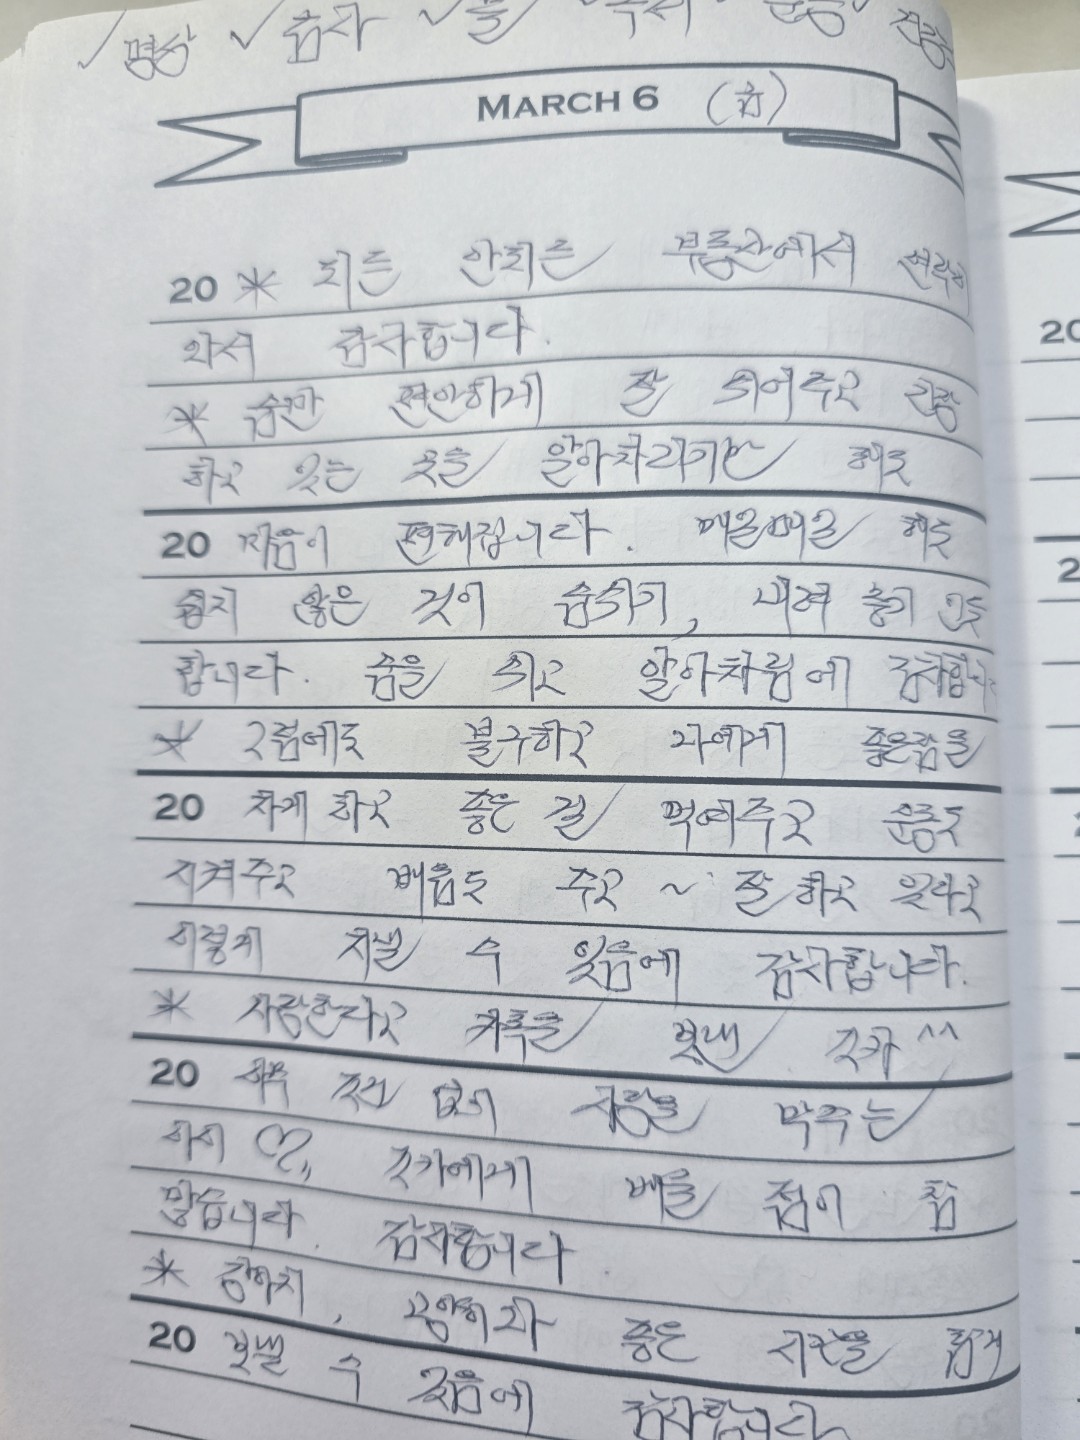 ✓ 명상 ✓ 감사 ✓ 물 ✓ 독서 ✓ 운동
MARCH 6 (금)
20 * 되든 안되든 부동산에서 연락이
와서 감사합니다.
* 숨만 편안하게 잘 쉬어주고
하고 있는 것을 알아차리기만 해도
20 마음이 편해집니다. 매일매일 해도
쉽지 않은 것이 숨쉬기, 내려 놓기 인듯
합니다. 숨을 쉬고 알아차림에 감사합니다
* 그럼에도 불구하고 나에게 좋은 말을
20 하게 하고 좋은 걸 먹여주고 운동도
시켜주고 배움도 주고 ~ 잘 하고 있다고
이렇게 지낼 수 있음에 감사합니다.
* 사랑한다고 카톡을 보내 조카 ^^
20 아무 조건 없이 사랑을 막 주는
아이 ♡,, 조카에게 배울 점이 참
많습니다. 감사합니다.
* 강아지, 고양이와 좋은 시간을
20 보낼 수 있음에 감사합니다
20
2